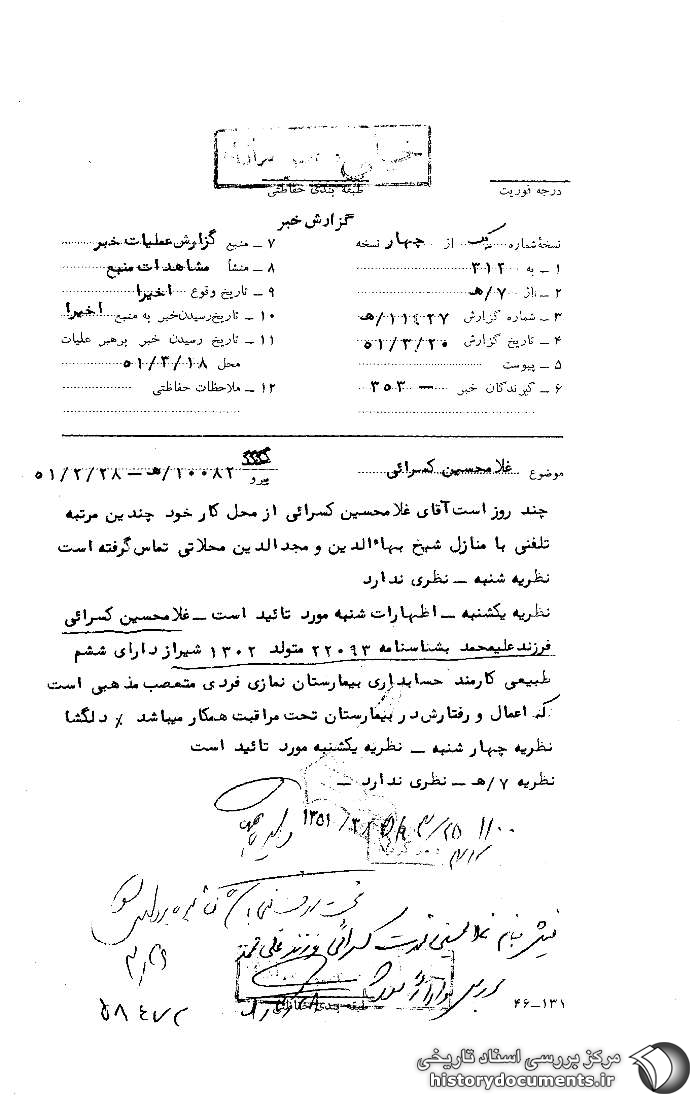 طبقه بندی حفاظتی
درجه فوریت
گزارش خبر
نسخهٔ شماره یک از چهار نسخه
۱ ـ به ۳۱۲
۲ ـ از ۷/هـ
۳ ـ شماره گزارش ۱۱۴۲۷/هـ
۴ ـ تاریخ گزارش ۵۱/۳/۲۰
۵ ـ پیوست
۶ ـ گیرندگان خبر ۳۵۳
۷ ـ منبع گزارش عملیات خبر
۸ ـ منشأ مشاهدات منبع
۹ ـ تاریخ وقوع اخیرا
۱۰ ـ تاریخ رسیدن خبر به منبع اخیرا
۱۱ ـ تاریخ رسیدن خبر برهبر عملیات
محل ۵۱/۳/۱۸
۱۲ ـ ملاحظات حفاظتی
موضوع غلامحسین کسرائی
پیرو ۱۰۰۸۲/هـ ـ ۵۱/۲/۲۸
چند روز است آقای غلامحسین کسرائی از محل کار خود چندین مرتبه
تلفنی با منازل شیخ بهاءالدین و مجدالدین محلاتی تماس گرفته است
نظریه شنبه ـ نظری ندارد
نظریه یکشنبه ـ اظهارات شنبه مورد تائید است ـ غلامحسین کسرائی
فرزند علیمحمد بشناسنامه ۲۲۰۹۳ متولد ۱۳۰۲ شیراز دارای ششم
طبیعی کارمند حسابداری بیمارستان نمازی فردی متعصب مذهبی است
که اعمال و رفتارش در بیمارستان تحت مراقبت همکار میباشد ٪ دلگشا
نظریه چهار شنبه ـ نظریه یکشنبه مورد تائید است
نظریه ۷/هـ ـ نظری ندارد ـ
۱۱۰۰
۳/۲۵
۱۳۵۱/۳/
فرزند علی محمد
طبقه بندی حفاظتی
۴۶-۱۳۱
مرکز بررسی اسناد تاریخی
historydocuments.ir